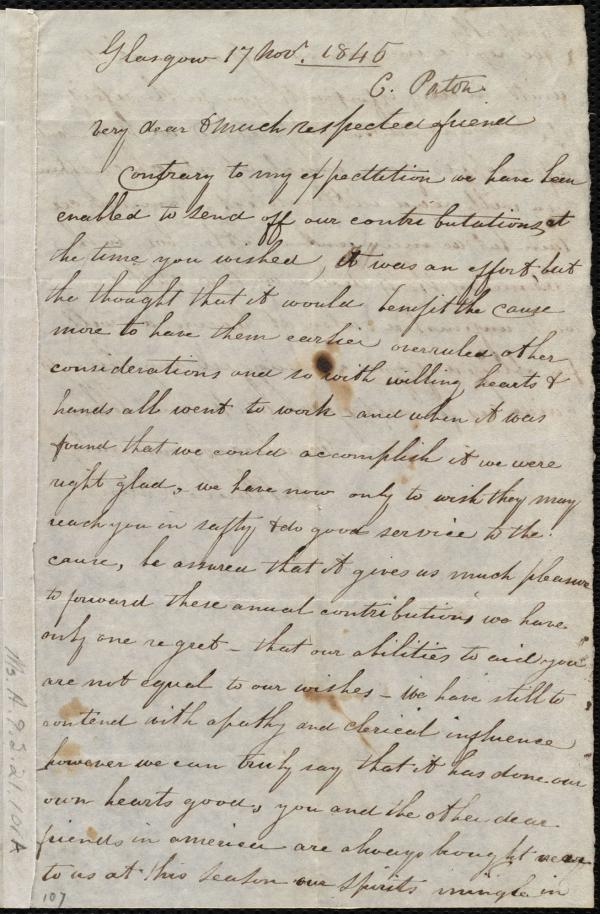 Glasgow 17 Novr. 1845
C. Paton.
Very dear & much respected friend
Contrary to my expectition we have been
enabled to send off our contributations at
the time you wished, it was an effort, but
the thought that it would benefit the cause
more to have them earlier overruled other
considerations and so with willing hearts &
hands all went to work - and when it was
found that we could accomplish it we were
right glad, we have now only to wish they may
reach you in safty & do good service to the
cause, be assured that it gives us much pleasure
to forward these anual contributions we have
only one regret - that our abilities to aid you
are not equal to our wishes - We have still to
contend with apathy and clerical influence
however we can truly say that it has done our
own hearts good, you and the other dear
friends in america are always brought near
to us at this season our spirits mingle in
107
Ms A.9.2.21.101A